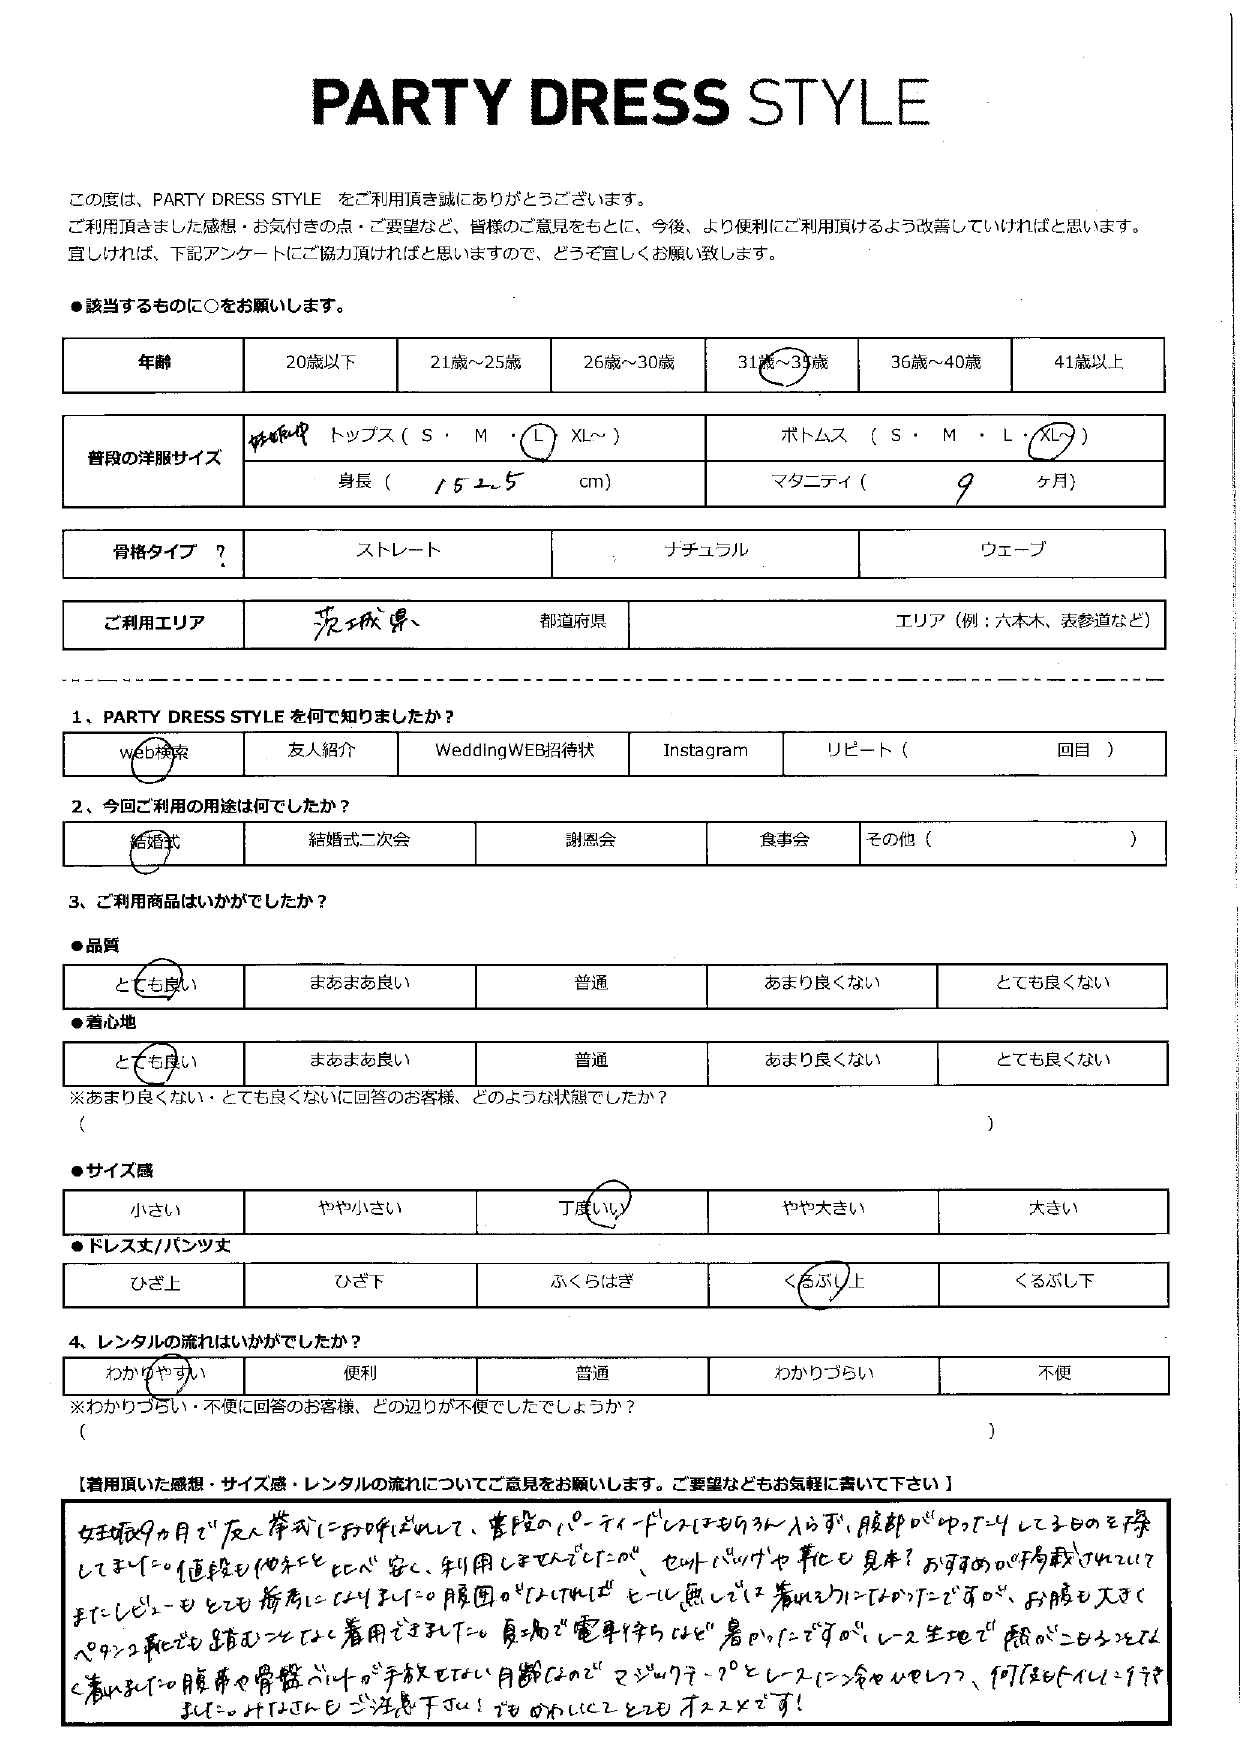 PARTY DRESS STYLE
この度は、PARTY DRESS STYLE をご利用頂き誠にありがとうございます。
ご利用頂きました感想・お気付きの点・ご要望など、皆様のご意見をもとに、今後、より便利にご利用頂けるよう改善していければと思います。
宜しければ、下記アンケートにご協力頂ければと思いますので、どうぞ宜しくお願い致します。
●該当するものに○をお願いします。
年齢 20歳以下 21歳～25歳 26歳～30歳 31歳～35歳 36歳～40歳 41歳以上
普段の洋服サイズ 妊娠中 トップス ( S ・ M ・ L ・ XL～ ) ボトムス ( S ・ M ・ L ・ XL～ )
身長 ( 152.5 cm) マタニティ ( 9 ヶ月)
骨格タイプ ? ストレート ナチュラル ウェーブ
ご利用エリア 茨城県 都道府県 エリア（例：六本木、表参道など）
1、PARTY DRESS STYLE を何で知りましたか？
web検索 友人紹介 WeddingWEB招待状 Instagram リピート ( 回目 )
2、今回ご利用の用途は何でしたか？
結婚式 結婚式二次会 謝恩会 食事会 その他 ( )
3、ご利用商品はいかがでしたか？
●品質
とても良い まあまあ良い 普通 あまり良くない とても良くない
●着心地
とても良い まあまあ良い 普通 あまり良くない とても良くない
※あまり良くない・とても良くないに回答のお客様、どのような状態でしたか？
( )
●サイズ感
小さい やや小さい 丁度いい やや大きい 大きい
●ドレス丈/パンツ丈
ひざ上 ひざ下 ふくらはぎ くるぶし上 くるぶし下
4、レンタルの流れはいかがでしたか？
わかりやすい 便利 普通 わかりづらい 不便
※わかりづらい・不便に回答のお客様、どの辺りが不便でしたでしょうか？
( )
【着用頂いた感想・サイズ感・レンタルの流れについてご意見をお願いします。ご要望などもお気軽に書いて下さい】
妊娠9ヵ月で友人挙式にお呼ばれして、普段のパーティードレスはもちろん入らず、腹部がゆったりしてるものを探
してました。値段も他社と比べ安く、利用しませんでしたが、セットバッグや靴も見本？おすすめが掲載されていて
またレビューもとても参考になりました。腹囲がなければヒール無しでは着れそうになかったですが、お腹も大きく
ペタンコ靴でも踏むことなく着用できました。真夏で電車待ちなど暑かったですが、レース生地で熱がこもることな
く着れました。腹帯や骨盤ベルトが手放せない月齢なのでマジックテープとレースに冷やひやしつつ、何度もトイレに行き
ました。みなさんもご注意下さい！でもかわいくてとてもオススメです！